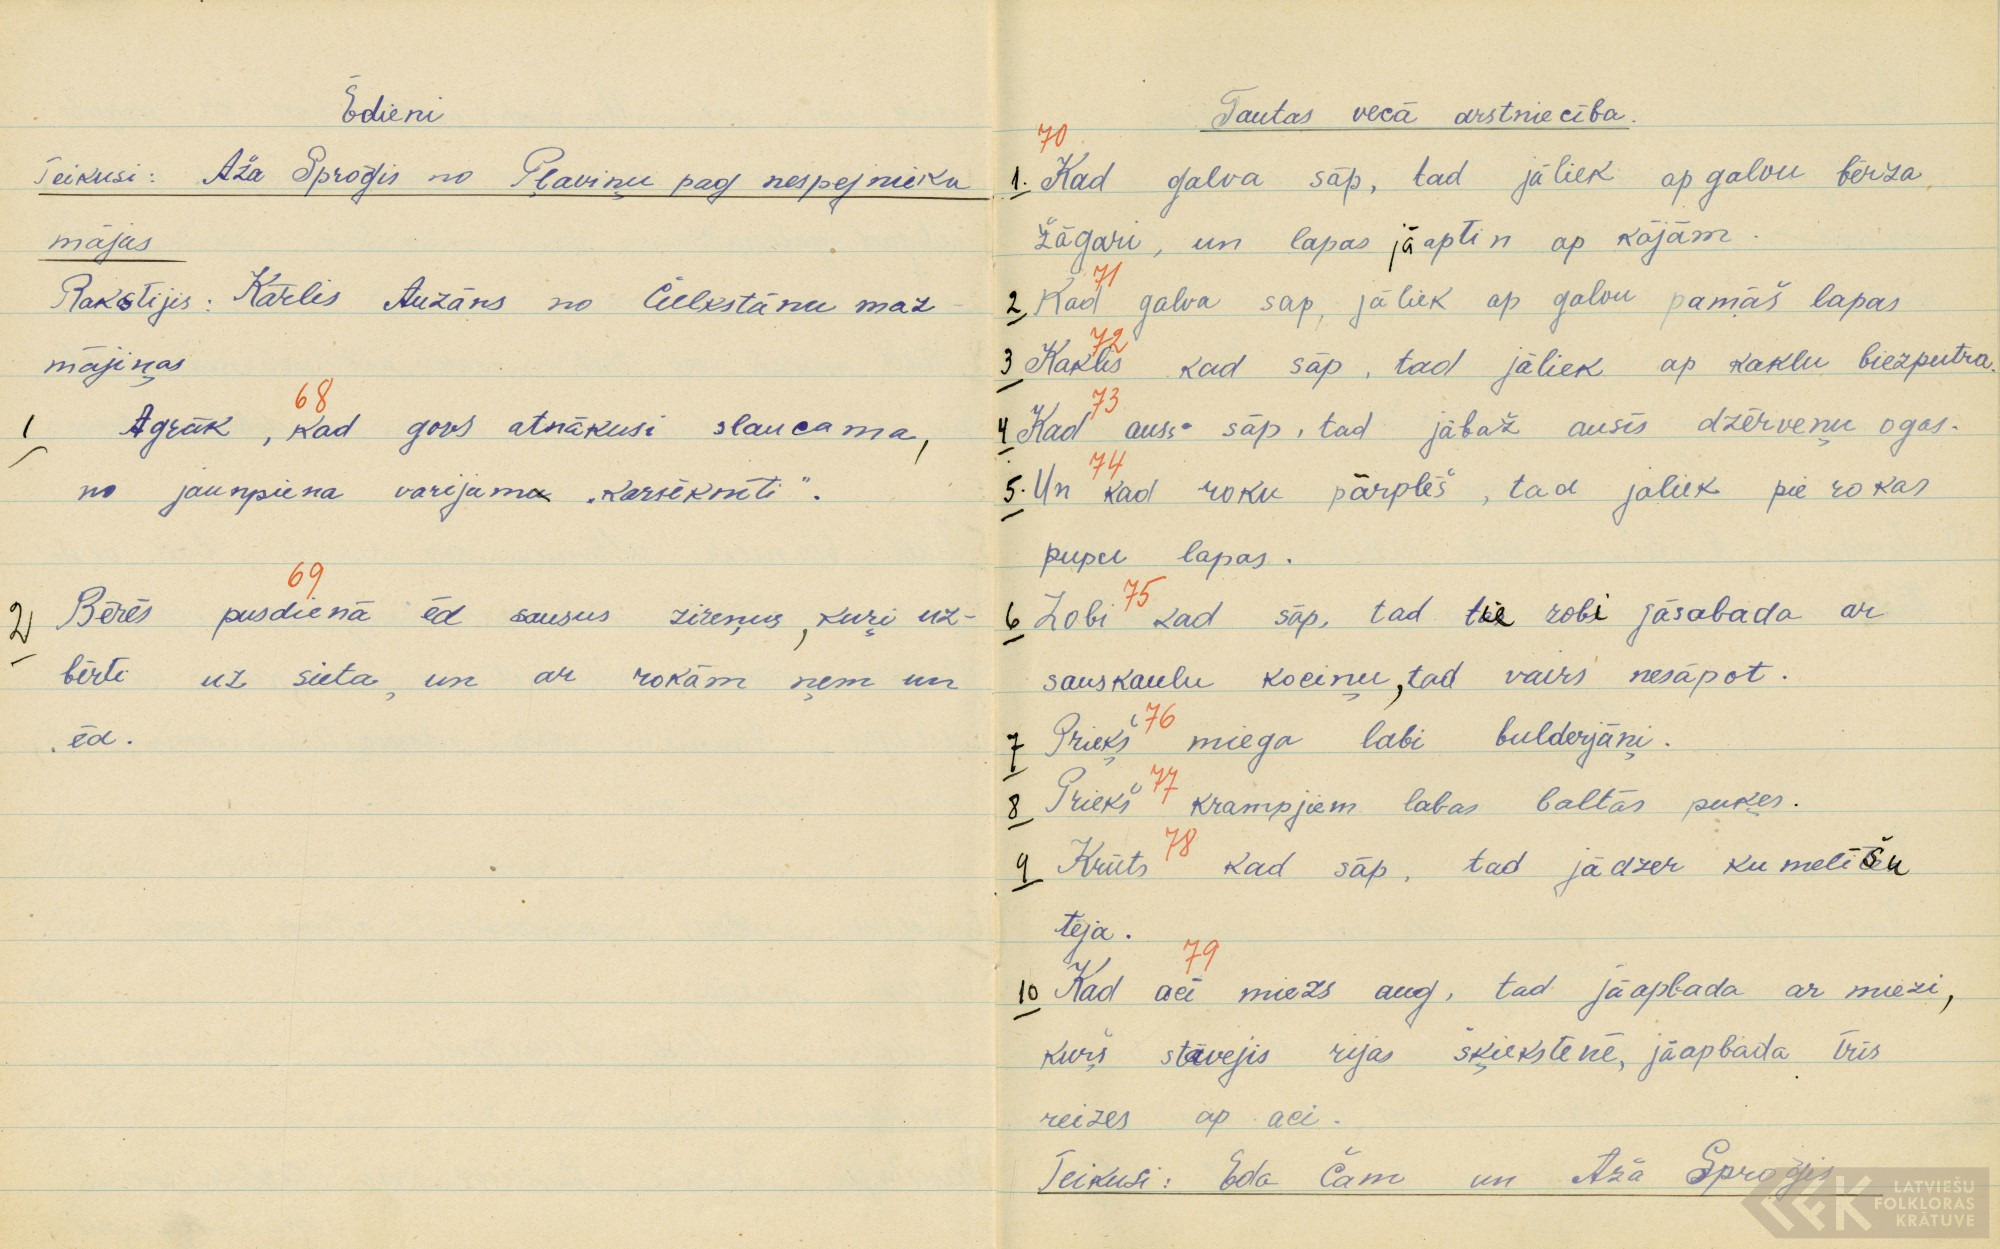 Ēdieni
Teikusi: Aža Sproģis no Pļaviņu pag nespejnieku
mājas
Rakstijis: Kārlis Auzāns no Cielkstānu maz-
mājiņas
68
1 Agrāk, kad govs atnākusi slaucama,
no jaunpiena varijama „karsēknīti".
69
2) Bērēs pusdienā ēd sausus zirņus, kuŗi uz-
bērti uz sieta, un ar rokām ņem un
ēd.
Tautas vecā arstniecība.
70
1. Kad galva sāp, tad jāliek ap galvu bērza
žāgari, un lapas jāaptin ap kājām.
71
2 Kad galva sap, jāliek ap galvu pamāš lapas
72
3 Kakls kad sāp, tad jāliek ap kaklu biezputra.
73
4 Kad auss sāp, tad jābaž ausīs dzērveņu ogas.
74
5. Un kad roku pārplēš, tad jaliek pie rokas
pupu lapas.
75
6 Zobi kad sāp, tad tie zobi jāsabada ar
sauskaulu kociņu, tad vairs nesāpot.
76
7 Priekš miega labi bulderjāņi.
77
8 Priekš krampjiem labas baltās puķes.
78
9 Krūts kad sāp, tad jādzer kumelīšu
tēja.
79
10 Kad aci miezs aug, tad jāapbada ar miezi,
kuŗš stāvejis rijas šķiekstēnē, jāapbada trīs
reizes ap aci.
Teikusi: Eda Čam un Aža Sproģis
LATVIEŠU
FOLKLORAS
KRĀTUVE